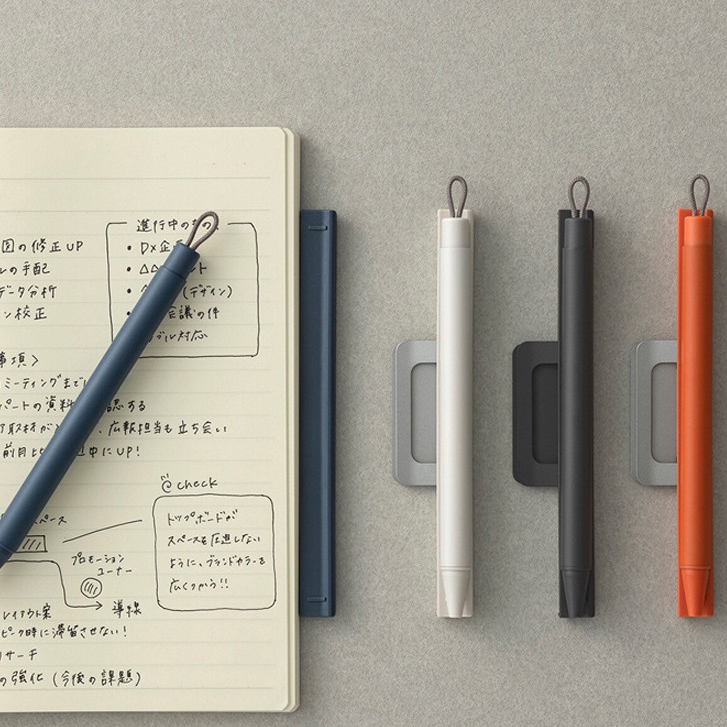 進行中の
図の修正UP
• DX企
の手配
• △△ント
データ分析
• (デザイン)
ン校正
会議の件
ブル対応
事項>
ミーティングまでに
パートの資料 認する
取材が 、広報担当も立ち会い
前月比 中にUP!
@check
スペース
トップボードが
スペースを圧迫しない
ように、ブランドカラーを
広くつかう!!
プロモーション
コーナー
レイアウト案
導線
ピーク時に滞留させない!
リサーチ
の強化(今後の課題)